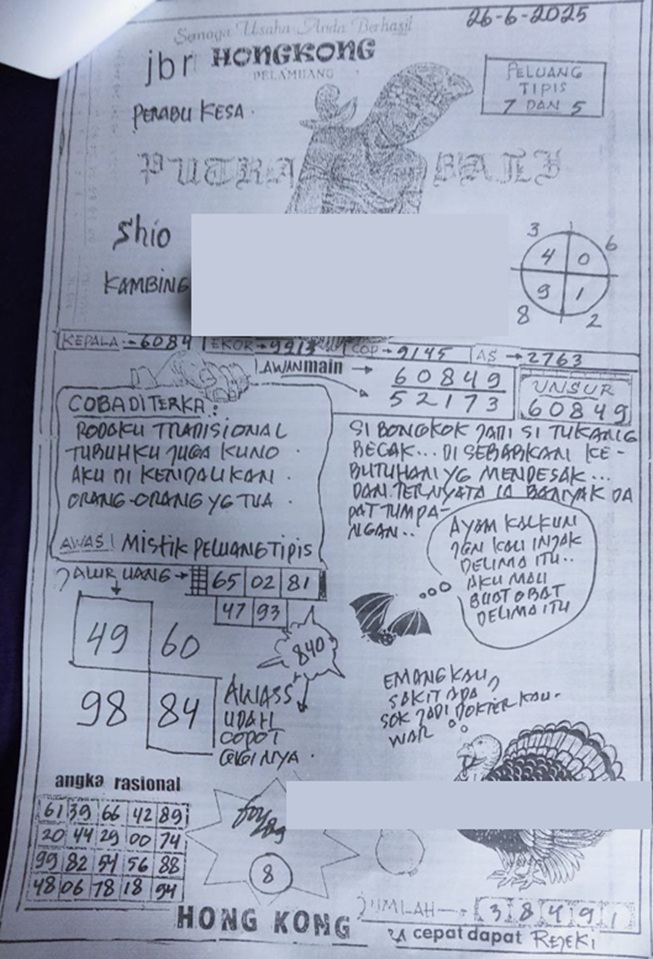 26-6-2025
Semoga Usaha Anda Berhasil
jbr HONGKONG
PELAMUANG
PELUANG
TIPIS
7 DAN 5
PERABU KESA
PUTRA BALI
Shio
KAMBING
3 6
4 0
9 1
8 2
KEPALA → 6084 EKOR → 9913 COP → 9145 AS → 2763
LAWAN main → 60849
52173
UNSUR
60849
COBA DITERKA :
RODAKU TRADISIONAL
TUBUHKU JUGA KUNO
AKU DI KENDALIKAN
ORANG-ORANG YG TUA
AWAS! Mistik PELUANG TIPIS
SI BONGKOK JADI SI TUKANG
BECAK... DI SEBABKAN KE-
BUTUHAN YG MENDESAK...
DAN TERNYATA IA BANYAK DA
PAT TUMPA-
NGAN..
AYAM KALKUN
JGN KAU INJAK
DELIMA ITU..
AKU MAU
BUAT OBAT
DELIMA ITU
JALUR UANG → 65 02 81
47 93
49 60
98 84
840
AWASS
UDAH
COPOT
GIGINYA .
EMANG KAU
SAKIT APA ?
SOK JADI DOKTER KAU.
WAR
angka rasional
61 39 66 42 89
20 44 29 00 74
99 82 54 56 88
48 06 78 18 94
8
JUMLAH → 3 8 4 9 1
HONG KONG
cepat dapat REJEKI